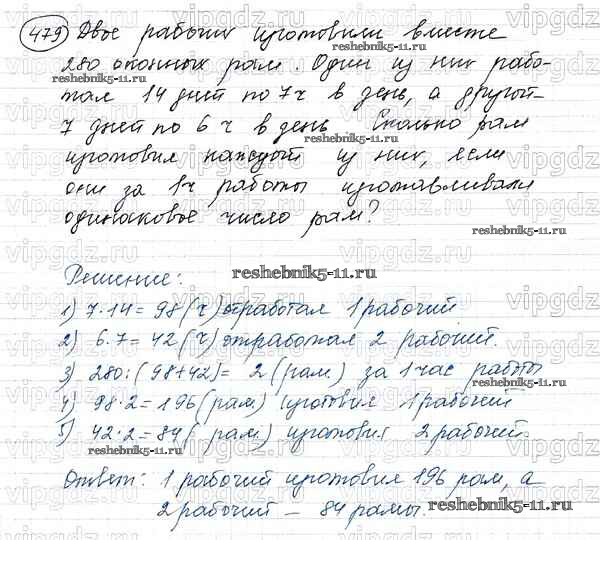 479 Двое рабочих изготовили вместе
reshebnik5-11.ru
280 оконных рам. Один из них рабо-
тал 14 дней по 7 ч в день, а другой -
7 дней по 6 ч в день. Сколько рам
reshebnik5-11.ru
изготовил каждый из них, если
они за 1ч работы изготавливали
одинаковое число рам?
reshebnik5-11.ru
Решение:
reshebnik5-11.ru
1) 7·14=98(ч) отработал 1 рабочий
2) 6·7=42(ч) отработал 2 рабочий.
3) 280:(98+42)= 2(рам) за 1 час работы
4) 98·2=196(рам) изготовил 1 рабочий
5) 42·2=84( рам) изготовил 2 рабочий.
reshebnik5-11.ru
Ответ: 1 рабочий изготовил 196 рам, а
2 рабочий - 84 рамы.
reshebnik5-11.ru
vipgdz.ru